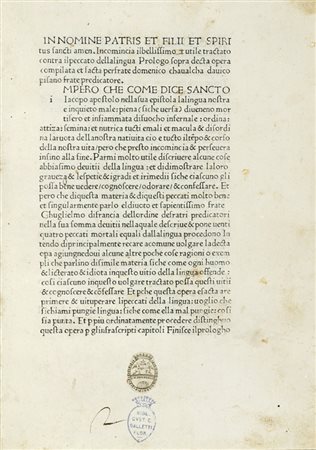 IN NOMINE PATRIS ET FILII ET SPIRI
tus sancti amen. Incomincia il bellissimo & utile tractato
contra il peccato della lingua Prologo sopra decta opera
compilata et facta per frate domenico chaualcha da uico
pisano frate predicatore.
MPERO CHE COME DICE SANCTO
i Iacopo apostolo nella sua epistola la lingua nostra
e inquieto male: piena (siche uersa) di ueneno mor
tisero et infiammata di fuocho infernale: ordina:
attiza: semina: et nutrica tucti e mali et macula & disordi
na la ruota della nostra natiuita cio e tucto il tēpo & corso
della nostra uita: pero che presto incomincia & perseuera
insino alla fine. Parmi molto utile discriuere alcune cose
abbiasimo deuitii della lingua: et di dimostrare la loro
graueza & lespetie & igradi et irimedii siche ciascuno gli
possa bēne uedere / cognoscere / odorare: & confessare. Et
pero che di questa materia & di questi peccati molto bene
et singularmente parlo el diucto et sapientissimo frate
Ghuglielmo di francia dellordine defratri predicatori
nella sua somma deuitii nella quale descriue & pone uenti
quattro peccati mortali equali dalla lingua procedono In
tendo di principalmente recare acomune uolgare ladecta
opa agiungnedoui alcune altre poche cose ragioni o exem
pli che parlino disimile materia siche come ogni huomo
& licterato & idiota inquesto uitio della lingua offende:
cosi ciascuno inquesto uolgare tractato possa questi uitii
& cognoscere & cōfessare. Et pche questa opera efacta are
primere & uituperare lipeccati della lingua: uoglio che
si chiami pungie lingua: siche come ella mal pungie: cosi
sia punta. Et p piu ordinatamente procedere distinguo
questa opera p gli infrascripti capitoli: Finisce il prologho